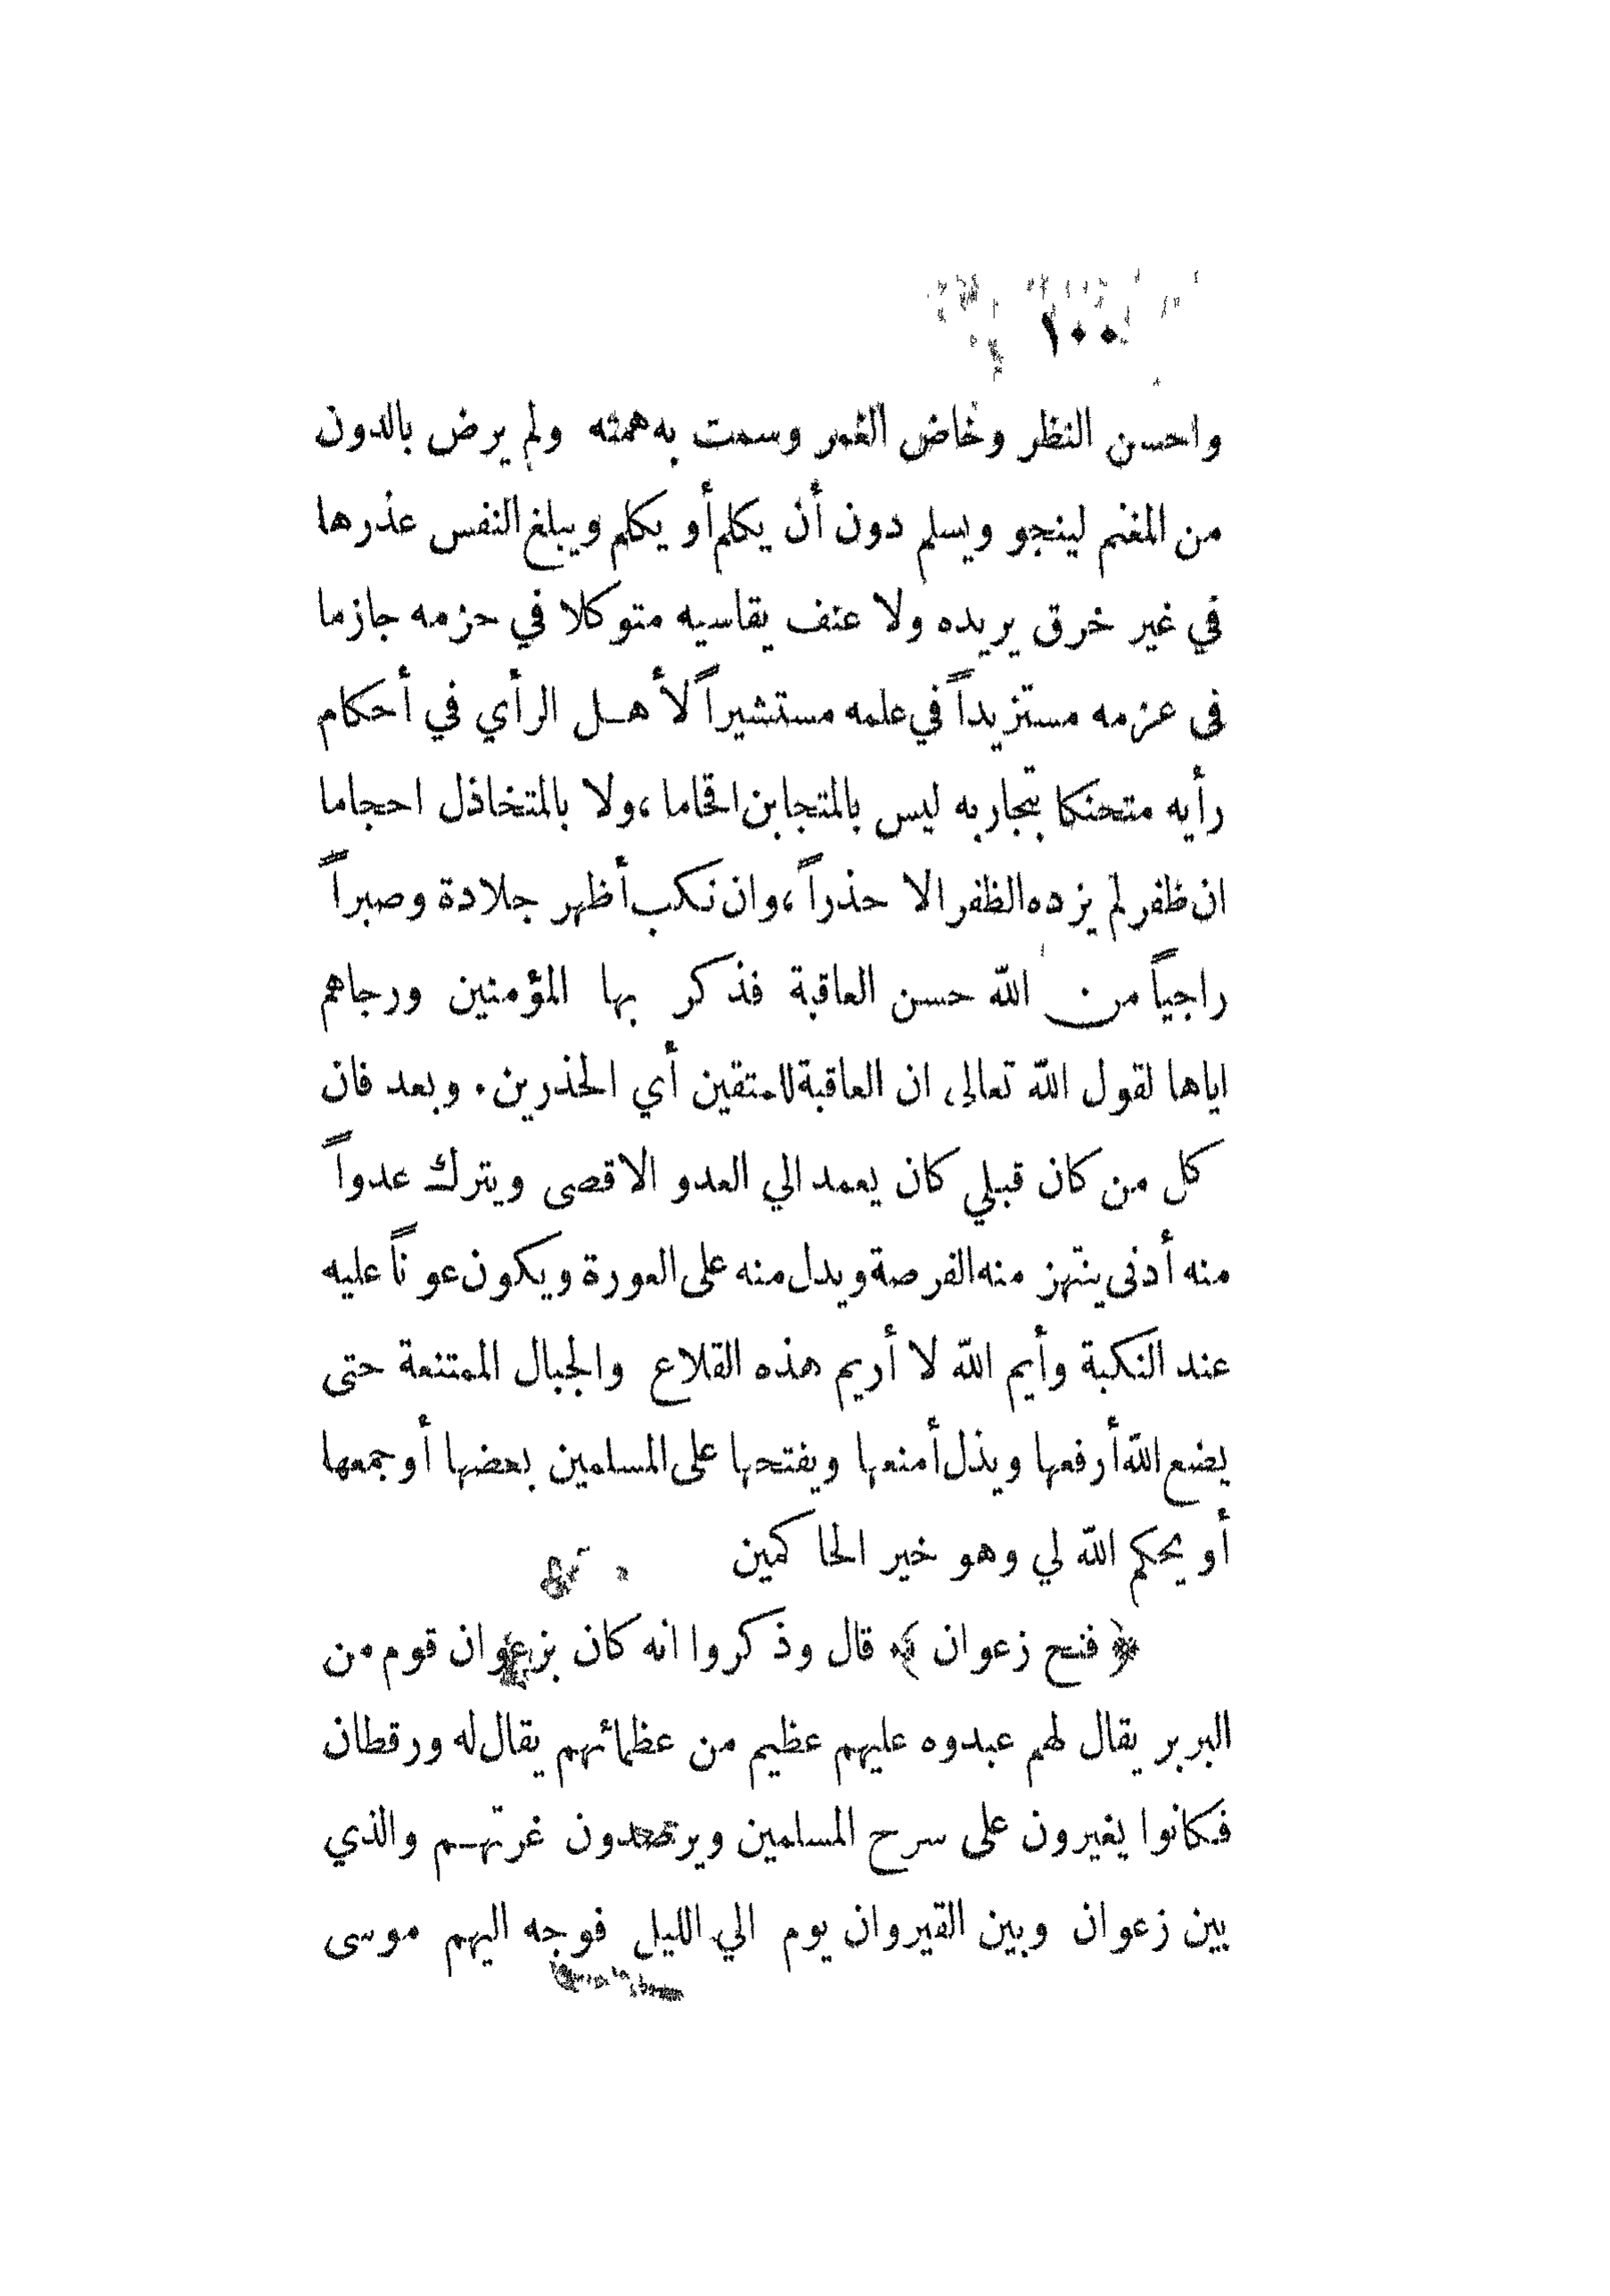 ١٠٠
واحسن النظر وخاض الغمر وسمت به همته ولم يرض بالدون
من المغنم لينجو ويسلم دون أن يكلم أو يكلم ويبلغ النفس عذرها
في غير خرق يريده ولا عنف يقاسيه متوكلا في حزمه جازما
فى عزمه مستزيداً في علمه مستشيراً لأهل الرأي في أحكام
رأيه متحنكا بتجاربه ليس بالمتجابن اقحاما ، ولا بالمتخاذل احجاما
ان ظفر لم يزده الظفر الا حذراً ، وان نكب أظهر جلادة وصبراً
راجياً من الله حسن العاقبة فذكر بها المؤمنين ورجاهم
اياها لقول الله تعالى ان العاقبة للمتقين أي الحذرين . وبعد فان
كل من كان قبلي كان يعمد الي العدو الاقصى ويترك عدواً
منه أدنى ينتهز منه الفرصة ويدل منه على العورة ويكون عوناً عليه
عند النكبة وأيم الله لا أريم هذه القلاع والجبال الممتنعة حتى
يضع الله أرفعها ويذل أمنعها ويفتحها على المسلمين بعضها أو جمعها
أو يحكم الله لي وهو خير الحاكمين
﴿ فتح زعوان ﴾ قال وذكروا انه كان بزعوان قوم من
البربر يقال لهم عبدوه عليهم عظيم من عظمائهم يقال له ورقطان
فكانوا يغيرون على سرح المسلمين ويرتصدون غرتهم والذي
بين زعوان وبين القيروان يوم الي الليل فوجه اليهم موسى